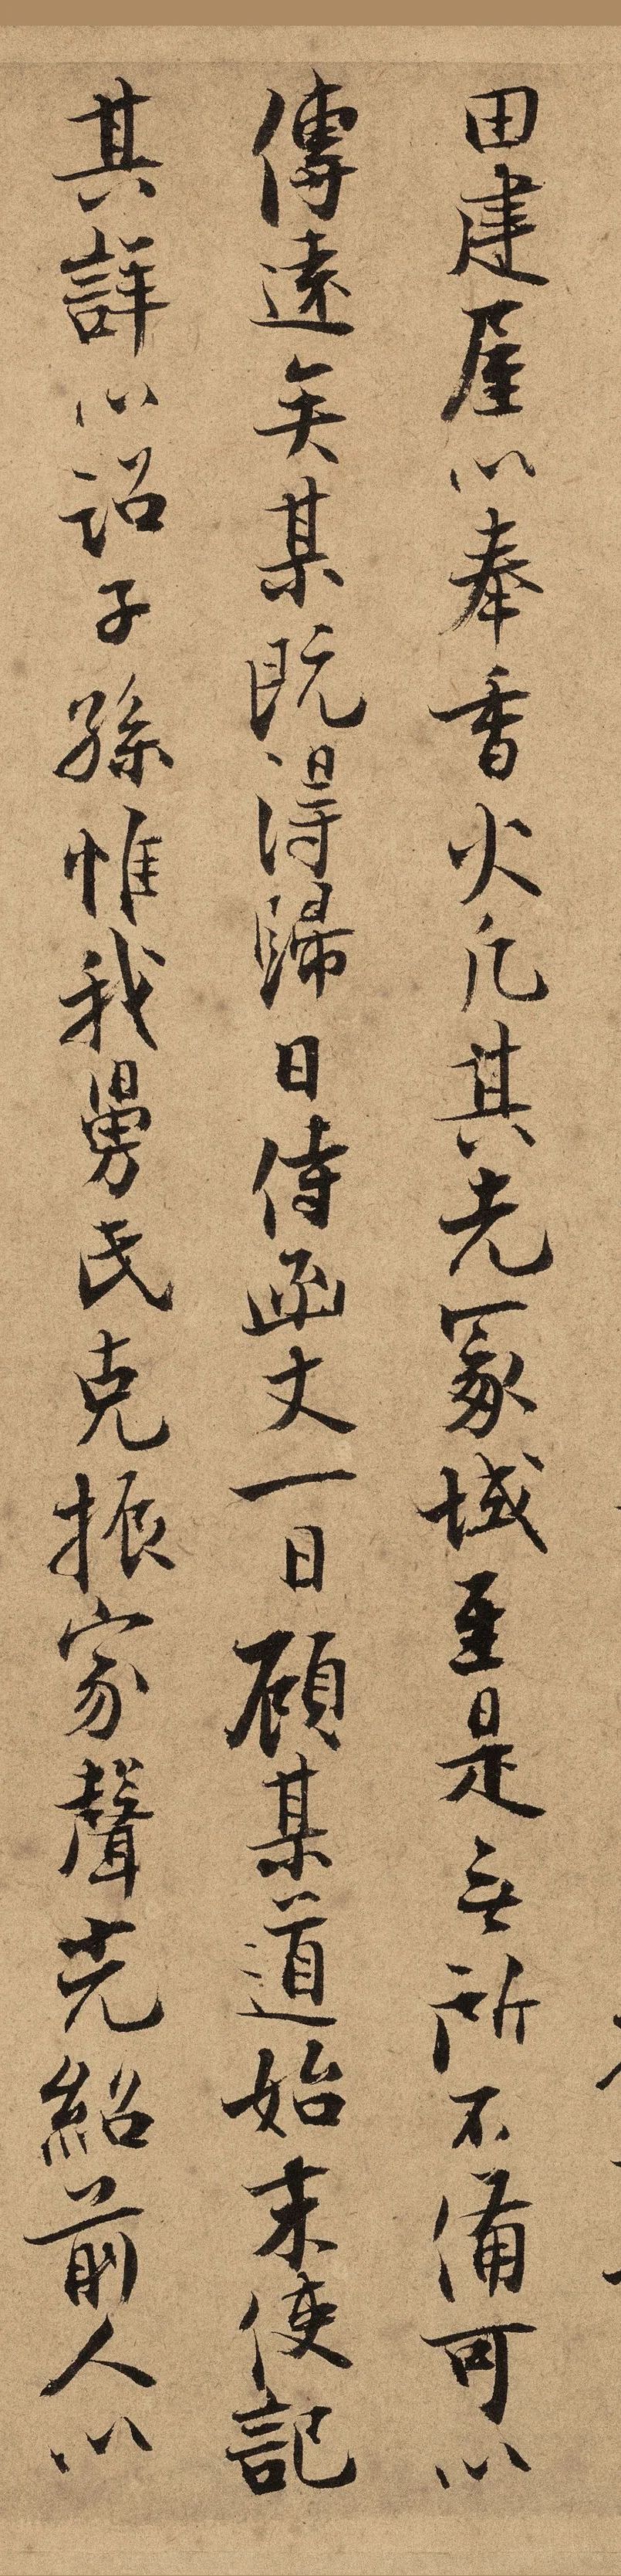 田建屋以奉香火凡其先冢域至是無所不備可以
傳遠矣某既得歸日侍函丈一日顧某道始末使記
其詳以詔子孫惟我舅氏克振家聲光紹前人以